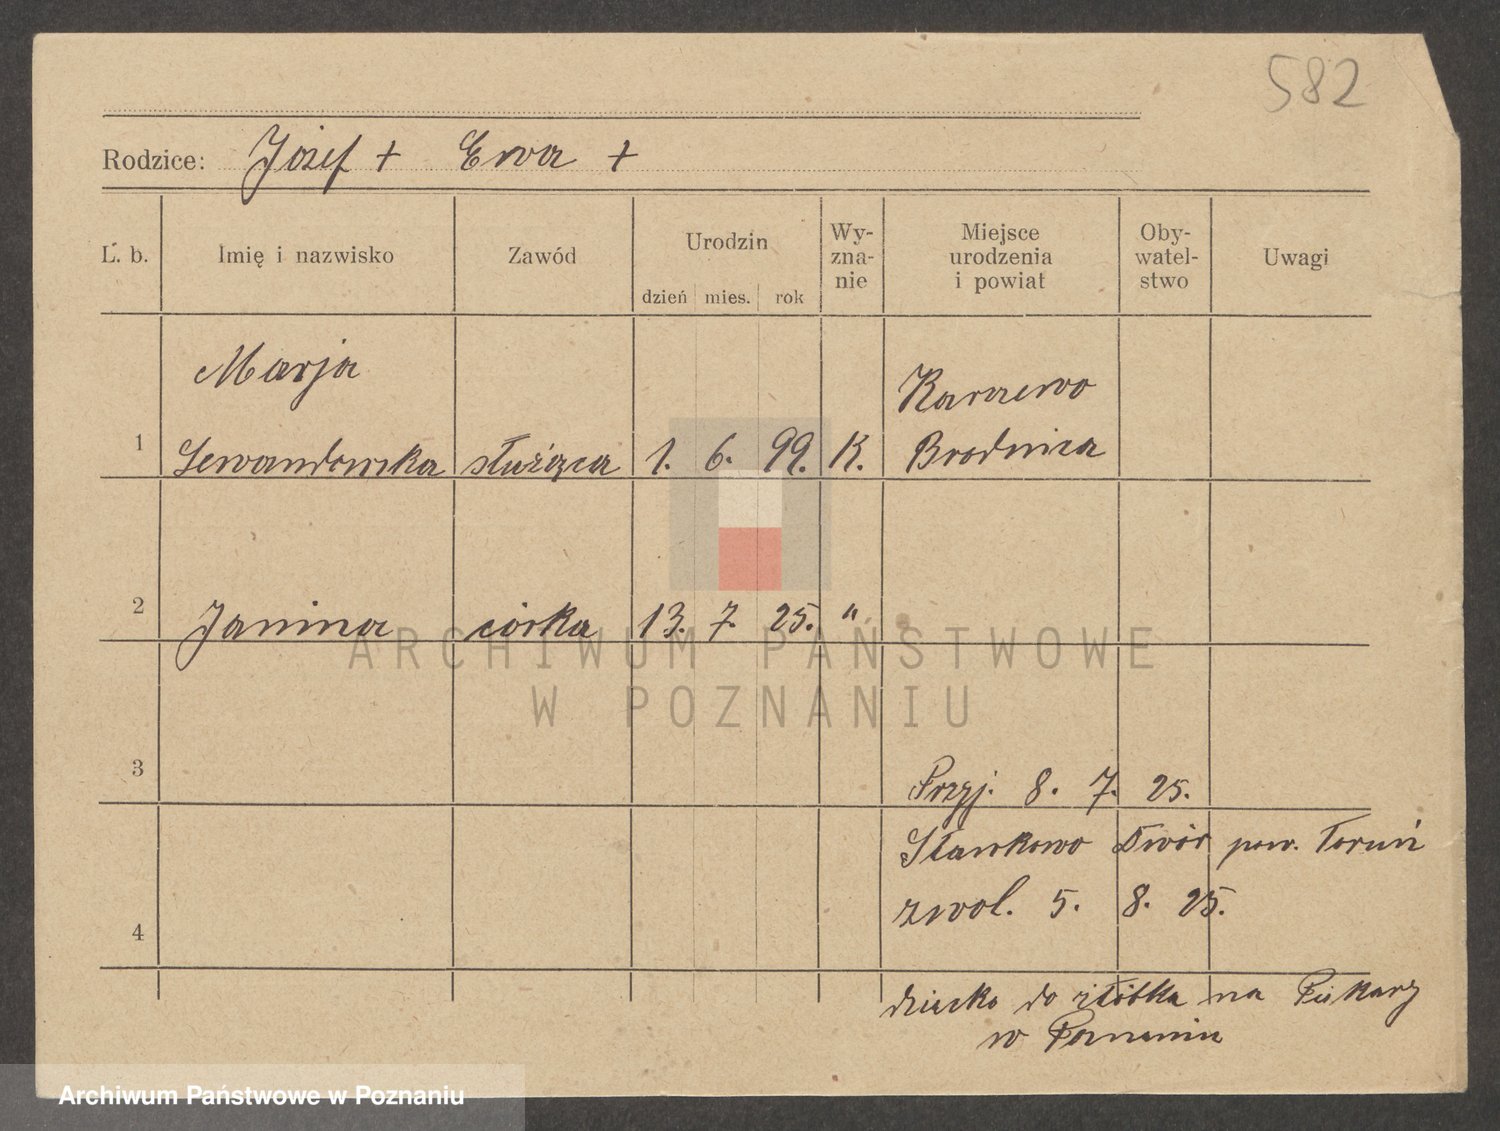 582
Rodzice: Józef + Ewa +
L. b. Imię i nazwisko Zawód Urodzin dzień mies. rok Wy-zna-nie Miejsce urodzenia i powiat Oby-watel-stwo Uwagi
Marja Karczewo
1 Lewandowska służąca 1. 6. 99. K. Brodnica
2 Janina córka 13. 7. 25. "
3 Przyj. 8. 7. 25.
Sławkowo Dwór pow. Toruń
zwol. 5. 8. 25.
4
dziecko do żłóbka na Piekary
w Poznaniu
ARCHIWUM PAŃSTWOWE
W POZNANIU
Archiwum Państwowe w Poznaniu